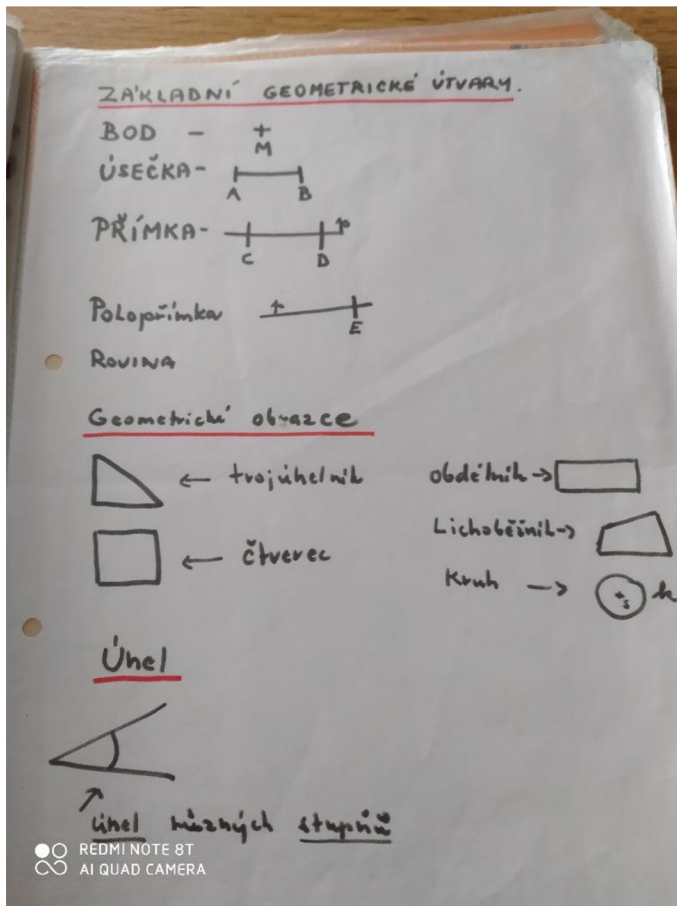 ZÁKLADNÍ GEOMETRICKÉ ÚTVARY.
BOD - + M
ÚSEČKA- A B
PŘÍMKA- C D p
Polopřímka p E
ROVINA
Geometrické obrazce
← trojúhelník
obdélník →
← čtverec
Lichoběžník →
Kruh → S k
Úhel
úhel různých stupňů
REDMI NOTE 8T
AI QUAD CAMERA